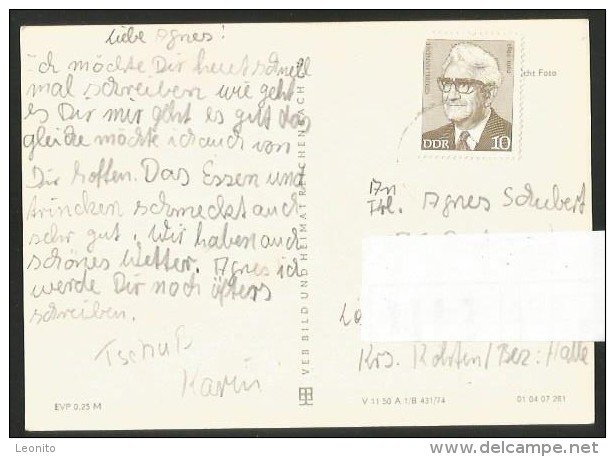 Liebe Agnes!
ich möchte Dir heut schnell
mal schreiben wie geht
es Dir mir göht es gut das
gleiche möchte ich auch von
Dir hoffen. Das Essen und
trincken schmeckt auch
sehr gut. Wir haben auch
schönes Wetter. Agnes ich
werde Dir noch öfters
schreiben.
Tschüß
Karin
EVP 0,25 M
VEB BILD UND HEIMAT REICHENBACH
DDR 10
cht Foto
An
Frl. Agnes Schubert
Krs. Köhten/Bez: Halle
V 11 50 A 1/B 431/74
01 04 07 281
Leonito
www.delcampe.net